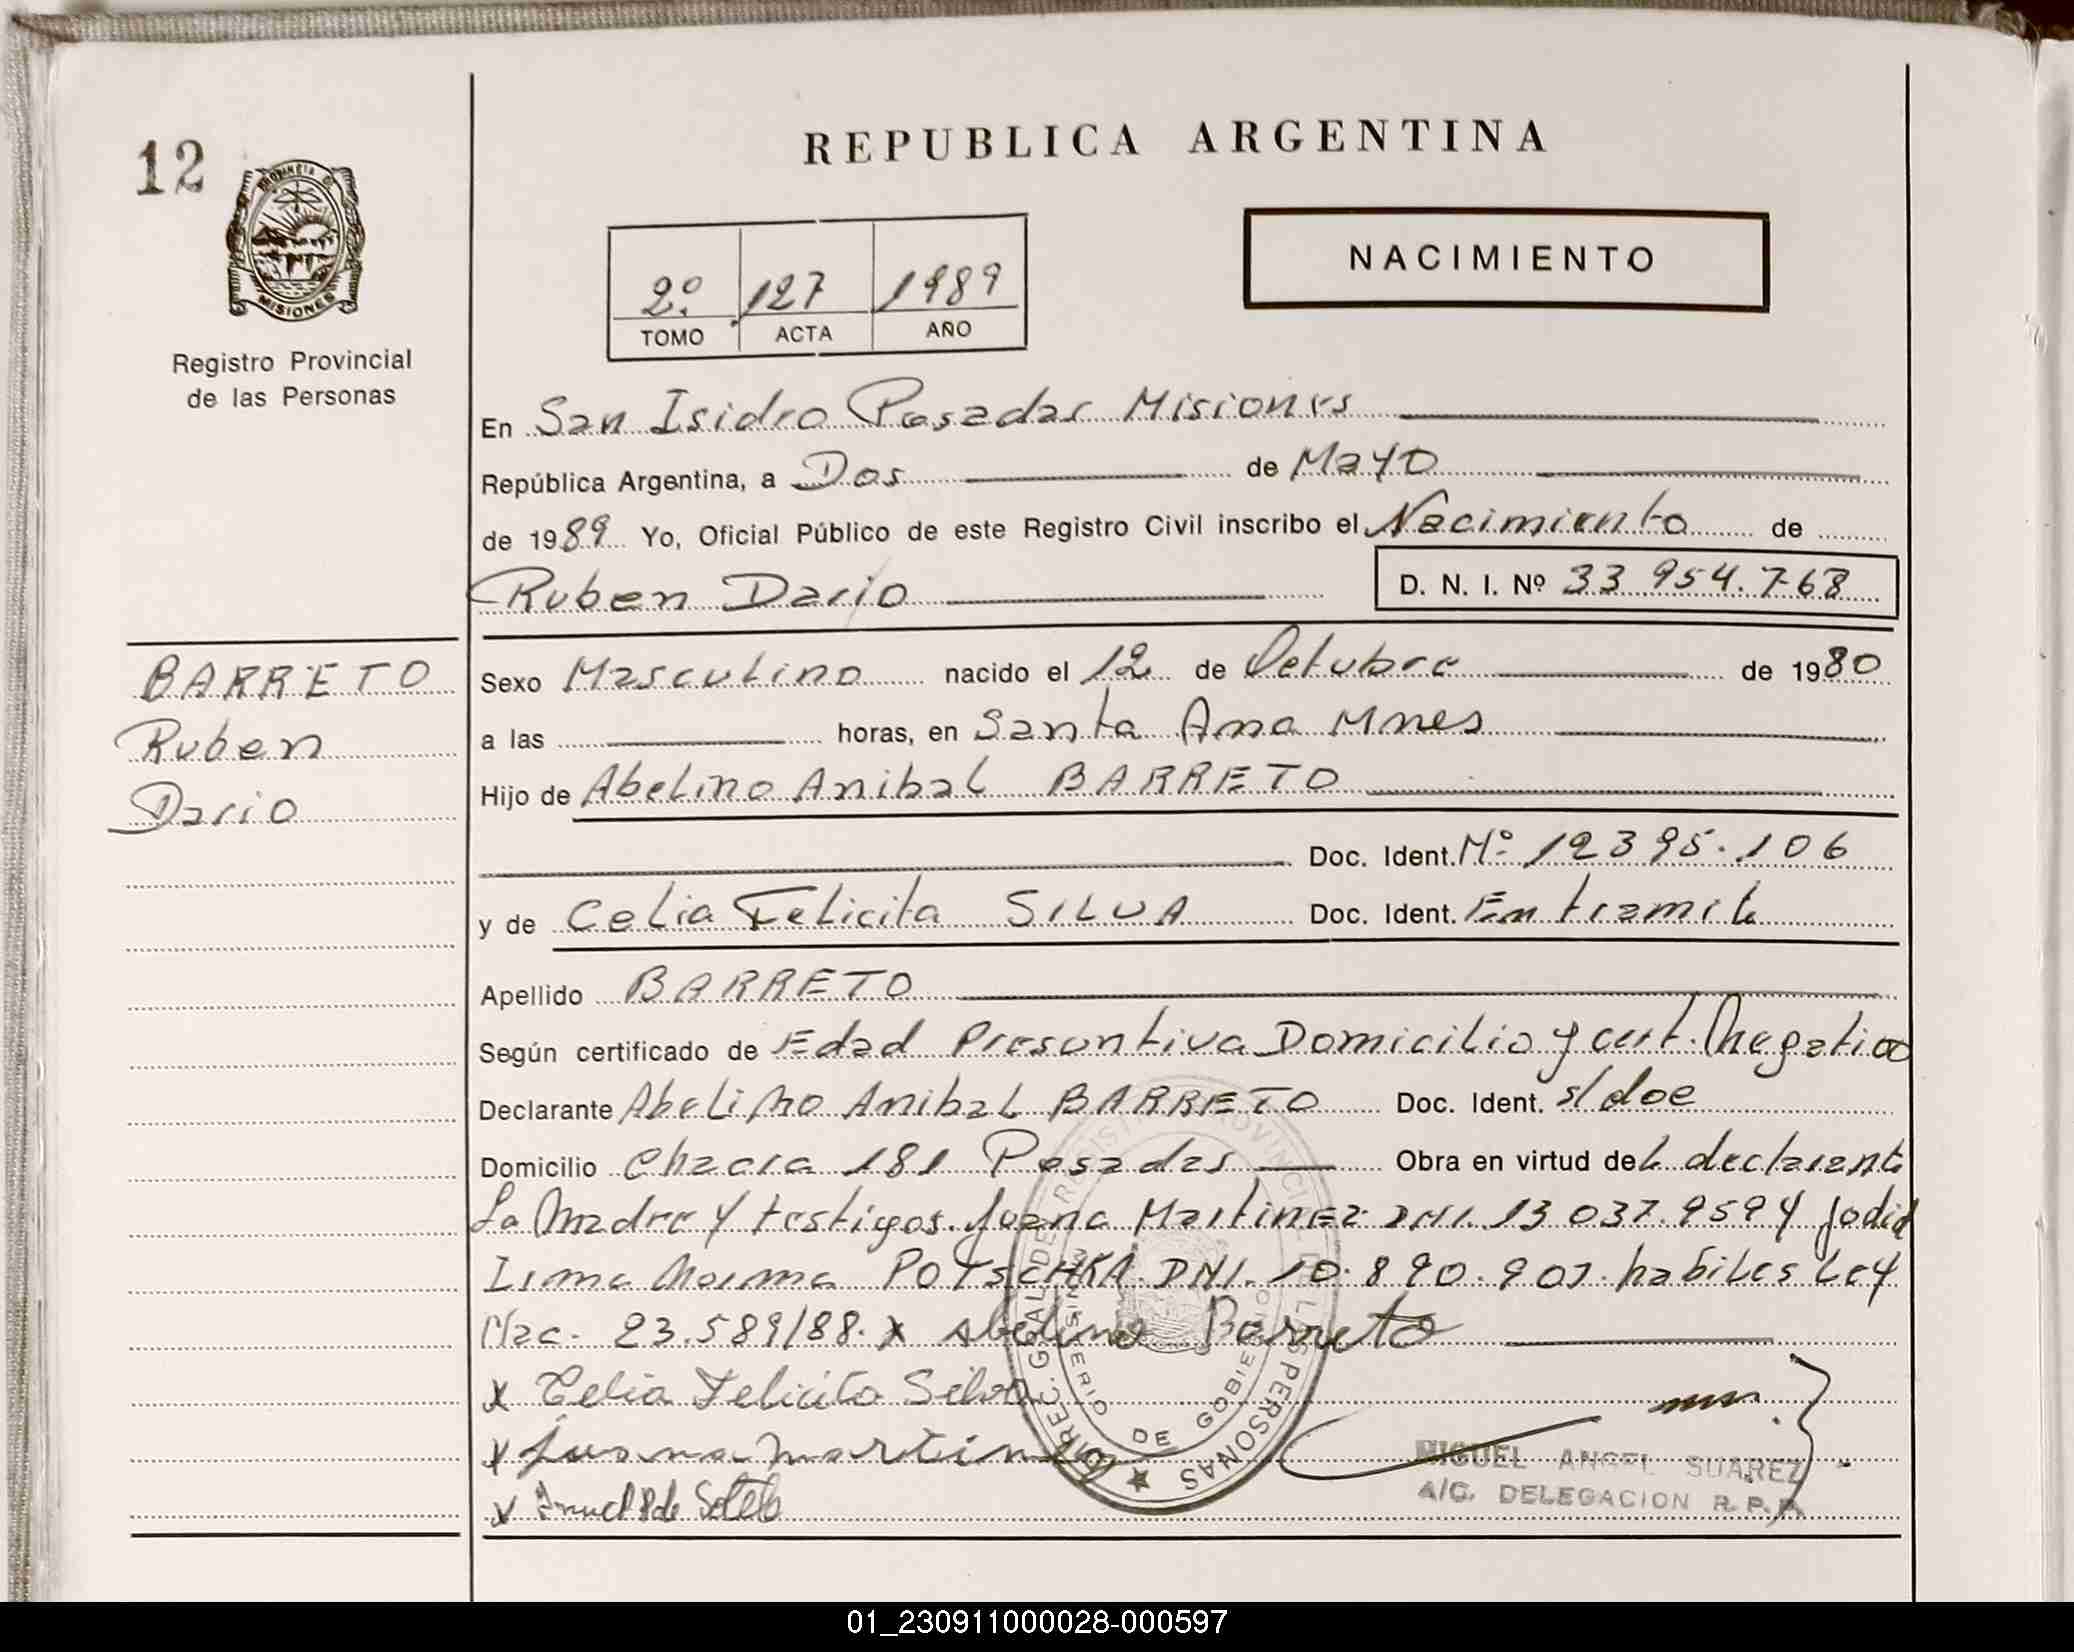 12
PROVINCIA DE
MISIONES
Registro Provincial
de las Personas
REPUBLICA ARGENTINA
2º 127 1989
TOMO ACTA AÑO
NACIMIENTO
En San Isidro Posadas Misiones
República Argentina, a Dos de Mayo
de 1989 Yo, Oficial Público de este Registro Civil inscribo el Nacimiento de
Ruben Dario D. N. I. Nº 33.954.768
BARRETO
Ruben
Dario
Sexo Masculino nacido el 12 de Octubre de 1980
a las horas, en Santa Ana Mnes
Hijo de Abelino Anibal BARRETO
Doc. Ident. Nº 12395.106
y de Celia Felicita SILVA Doc. Ident. En tramite
Apellido BARRETO
Según certificado de Edad Presuntiva Domicilio y cert. Negativo
Declarante Abelino Anibal BARRETO Doc. Ident. s/doc
Domicilio Chacra 181 Posadas Obra en virtud del declarante
La Madre y testigos. Juana Martinez DNI. 13 037.959 y
Irma Norma POTSCHKA. DNI. 10.890.901. habiles Ley
Nac. 23.589/88. x Abelino Barreto
x Celia Felicita Silva
x Juana Martinez
x
MIGUEL ANGEL SUAREZ
A/C. DELEGACION R. P. P.
DIREC. GRAL DE REGISTRO PROVINCIAL DE LAS PERSONAS
MINISTERIO DE GOBIERNO
01_230911000028-000597